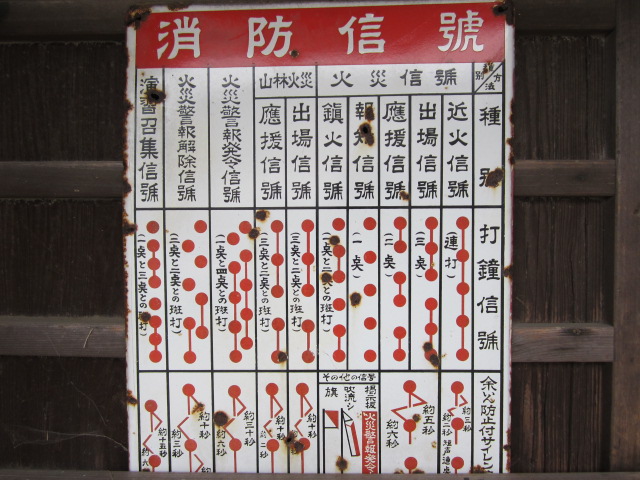 消防信號
方法
種別
火災信號
山林火災
種號
近火信號
出場信號
應援信號
報知信號
鎮火信號
出場信號
應援信號
火災警報発令信號
火災警報解除信號
演習召集信號
打鐘信號
(連打)
(三点)
(二点)
(一点)
(一点と二点との班打)
(三点と二点との班打)
(三点と二点との班打)
(一点と四点との班打)
(二点と二点との班打)
(一点と三点との班打)
余いん防止付サイレン
約三秒
約二秒 短声連
約五秒
約六秒
その他の信号
掲示板
火災警報発令
吹流シ
旗
約十秒
約十秒
約二秒
約三十秒
約六秒
約十秒
約三秒
約十五秒
約六